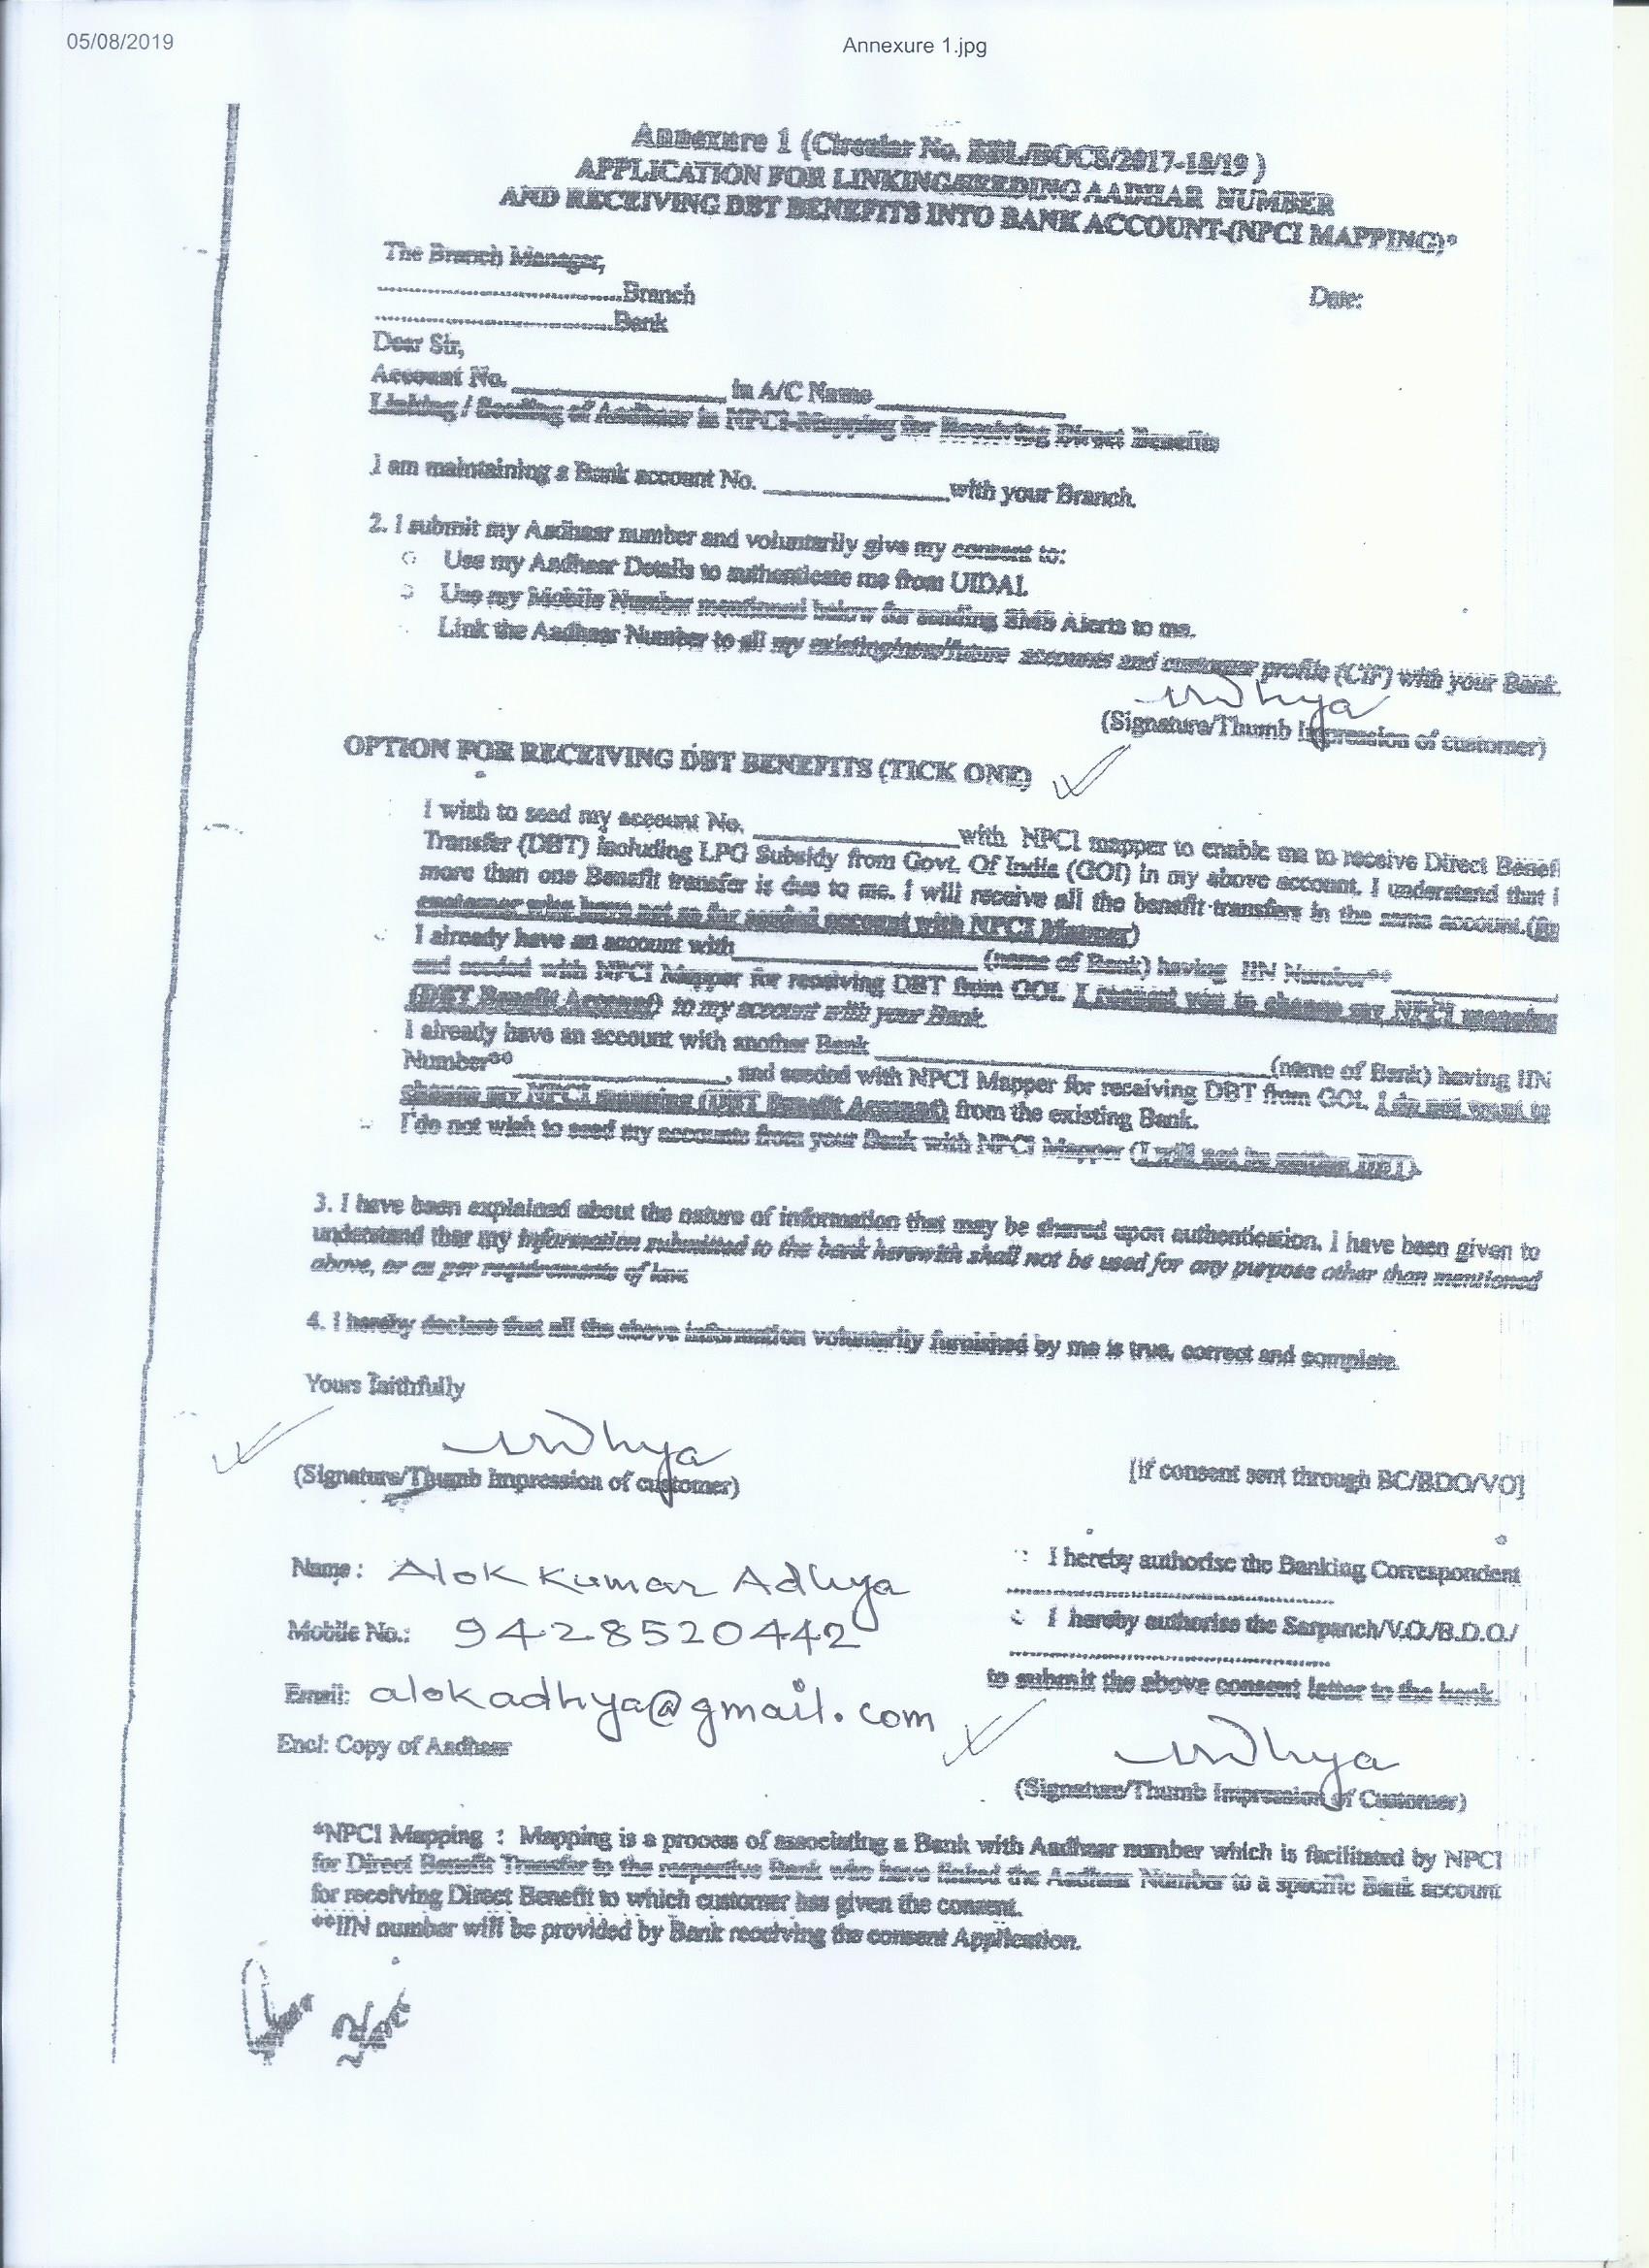 05/08/2019
Annexure 1.jpg
Annexure 1 (Circular No. BBL/BOCS/2017-18/19 )
APPLICATION FOR LINKING/SEEDING AADHAR NUMBER
AND RECEIVING DBT BENEFITS INTO BANK ACCOUNT-(NPCI MAPPING)*
The Branch Manager,
..............................Branch
Date:
..............................Bank
Dear Sir,
Account No. ____________ in A/C Name ____________
Linking / Seeding of Aadhaar in NPCI-Mapping for Receiving Direct Benefits
I am maintaining a Bank account No. ____________with your Branch.
2. I submit my Aadhaar number and voluntarily give my consent to:
Use my Aadhaar Details to authenticate me from UIDAI.
Use my Mobile Number mentioned below for sending SMS Alerts to me.
Link the Aadhaar Number to all my existing/new/future accounts and customer profile (CIF) with your Bank.
(Signature/Thumb Impression of customer)
OPTION FOR RECEIVING DBT BENEFITS (TICK ONE)
I wish to seed my account No. ____________with NPCI mapper to enable me to receive Direct Benefi
Transfer (DBT) including LPG Subsidy from Govt. Of India (GOI) in my above account. I understand that i
more than one Benefit transfer is due to me. I will receive all the benefit transfers in the same account.
customer who have not so far seeded account with NPCI Mapper)
I already have an account with____________ (name of Bank) having IIN Number**____________
and seeded with NPCI Mapper for receiving DBT from GOI. I request you to change my NPCI mapping
(DBT Benefit Account) to my account with your Bank.
I already have an account with another Bank ____________(name of Bank) having IIN
Number**____________, and seeded with NPCI Mapper for receiving DBT from GOI. I do not want to
change my NPCI mapping (DBT Benefit Account) from the existing Bank.
I do not wish to seed my accounts from your Bank with NPCI Mapper (I will not be getting DBT).
3. I have been explained about the nature of information that may be shared upon authentication. I have been given to
understand that my information submitted to the bank herewith shall not be used for any purpose other than mentioned
above, or as per requirements of law.
4. I hereby declare that all the above information voluntarily furnished by me is true, correct and complete.
Yours faithfully
(Signature/Thumb Impression of customer)
[if consent sent through BC/BDO/VO]
Name : Alok Kumar Adhya
I hereby authorise the Banking Correspondent
Mobile No.: 9428520442
I hereby authorise the Sarpanch/V.O./B.D.O./
to submit the above consent letter to the bank.
Email: alokadhya@gmail.com
Encl: Copy of Aadhaar
(Signature/Thumb Impression of Customer)
*NPCI Mapping : Mapping is a process of associating a Bank with Aadhaar number which is facilitated by NPCI
for Direct Benefit Transfer to the respective Bank who have linked the Aadhaar Number to a specific Bank account
for receiving Direct Benefit to which customer has given the consent.
**IIN number will be provided by Bank receiving the consent Application.